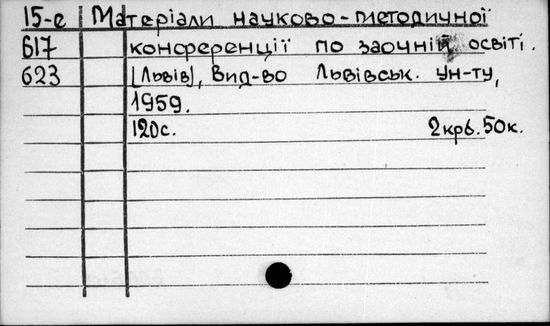 15-е Матеріали науково-методичної
617 конференції по заочній освіті.
623 [Львів], Вид-во Львівськ. ун-ту,
1959.
120с. 2крб. 50к.